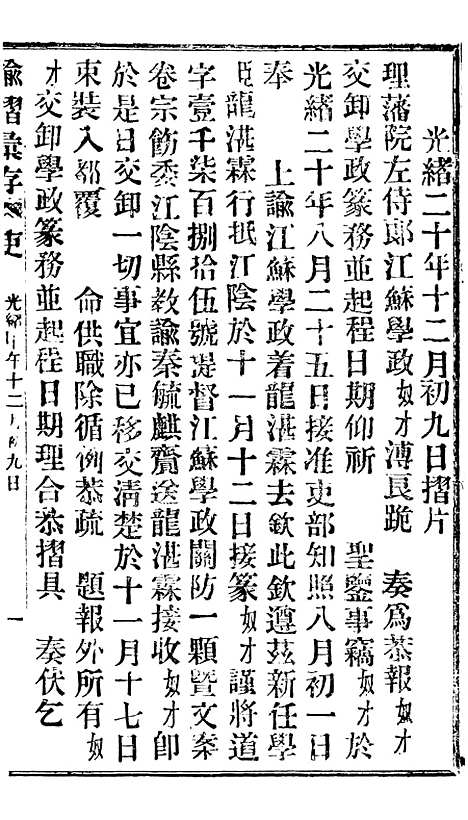 光緒二十年十二月初九日摺片
理藩院左侍郎江蘇學政奴才溥良跪 奏爲恭報奴才
交卸學政篆務並起程日期仰祈 聖鑒事竊奴才於
光緒二十年八月二十五日接准吏部知照八月初一日
奉 上諭江蘇學政着龍湛霖去欽此欽遵茲新任學
臣龍湛霖行抵江陰於十一月十二日接篆奴才謹將道
字壹千柒百捌拾伍號提督江蘇學政關防一顆暨文案
卷宗飭委江陰縣教諭秦毓麒賫送龍湛霖接收奴才即
於是日交卸一切事宜亦已移交清楚於十一月十七日
束裝入都覆 命供職除循例恭疏 題報外所有奴
才交卸學政篆務並起程日期理合恭摺具 奏伏乞
諭摺彙存 吏 光緒 年十二月初九日 一